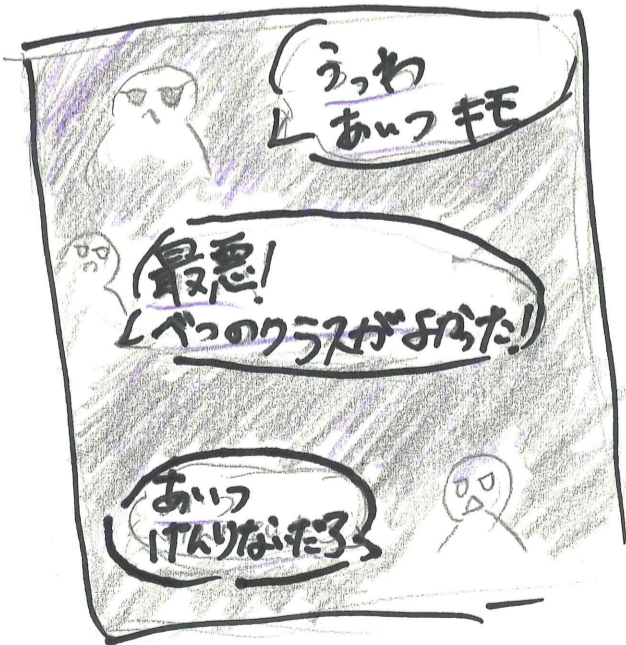 うっわ
あいつ キモ
最悪!
べつのクラスがよかった!
あいつ
けんりないだろ